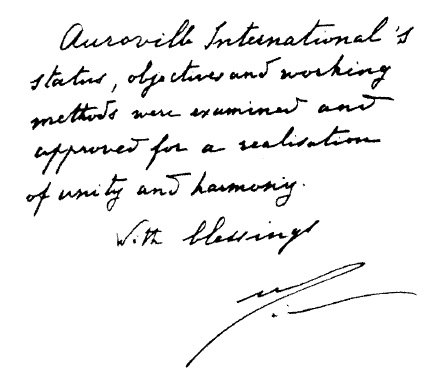 Auroville International's
status, objectives and working
methods were examined and
approved for a realisation
of unity and harmony.
With blessings